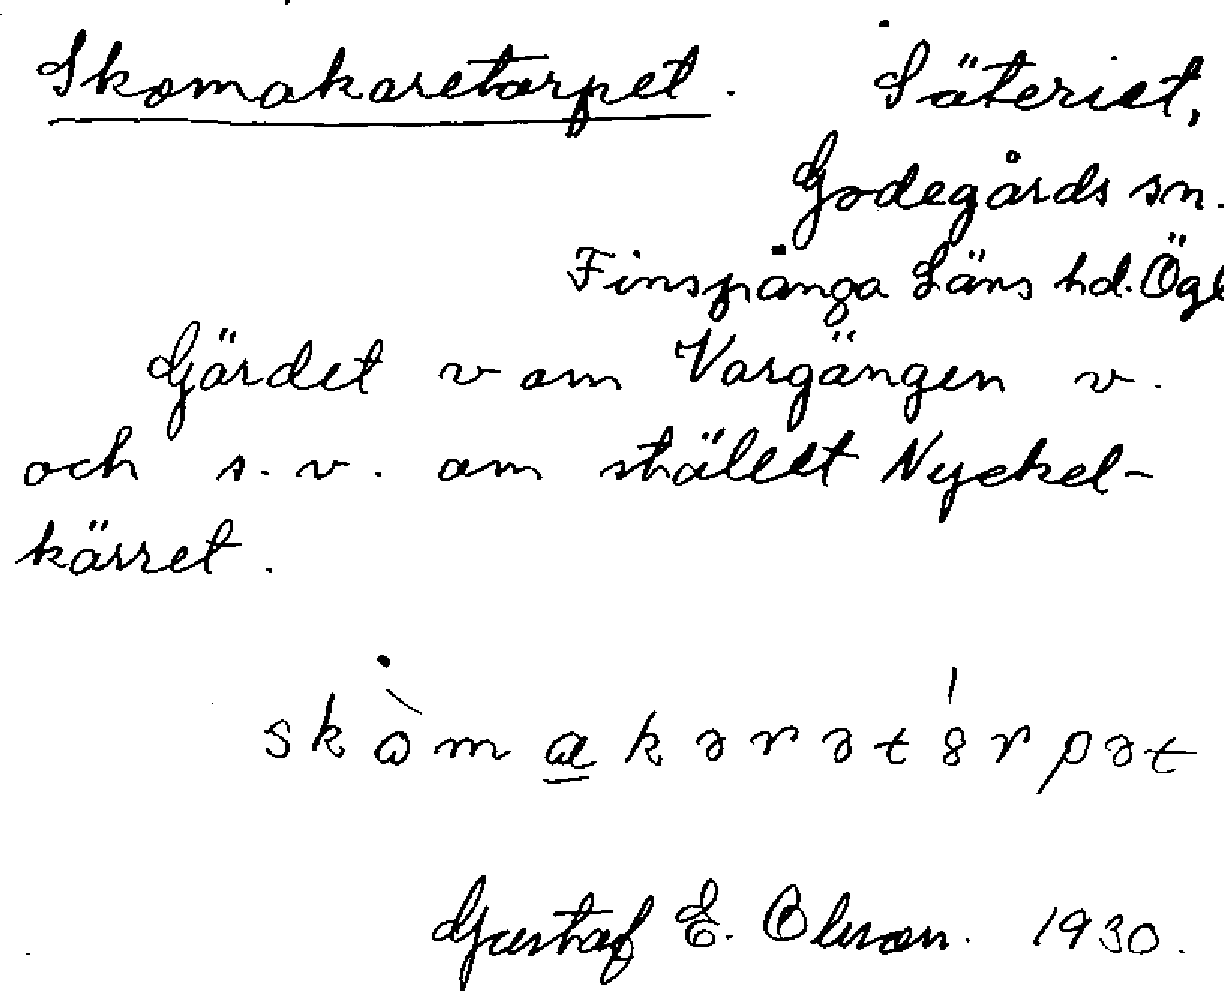 Skomakaretorpet. Säteriet,
Godegårds sn.
Finspånga Läns hd. Ögl
Gärdet v om Vargängen v.
och s.v. om stället Nyckel-
kärret.
skòmakərətórpət
Gustaf E. Olsson. 1930.